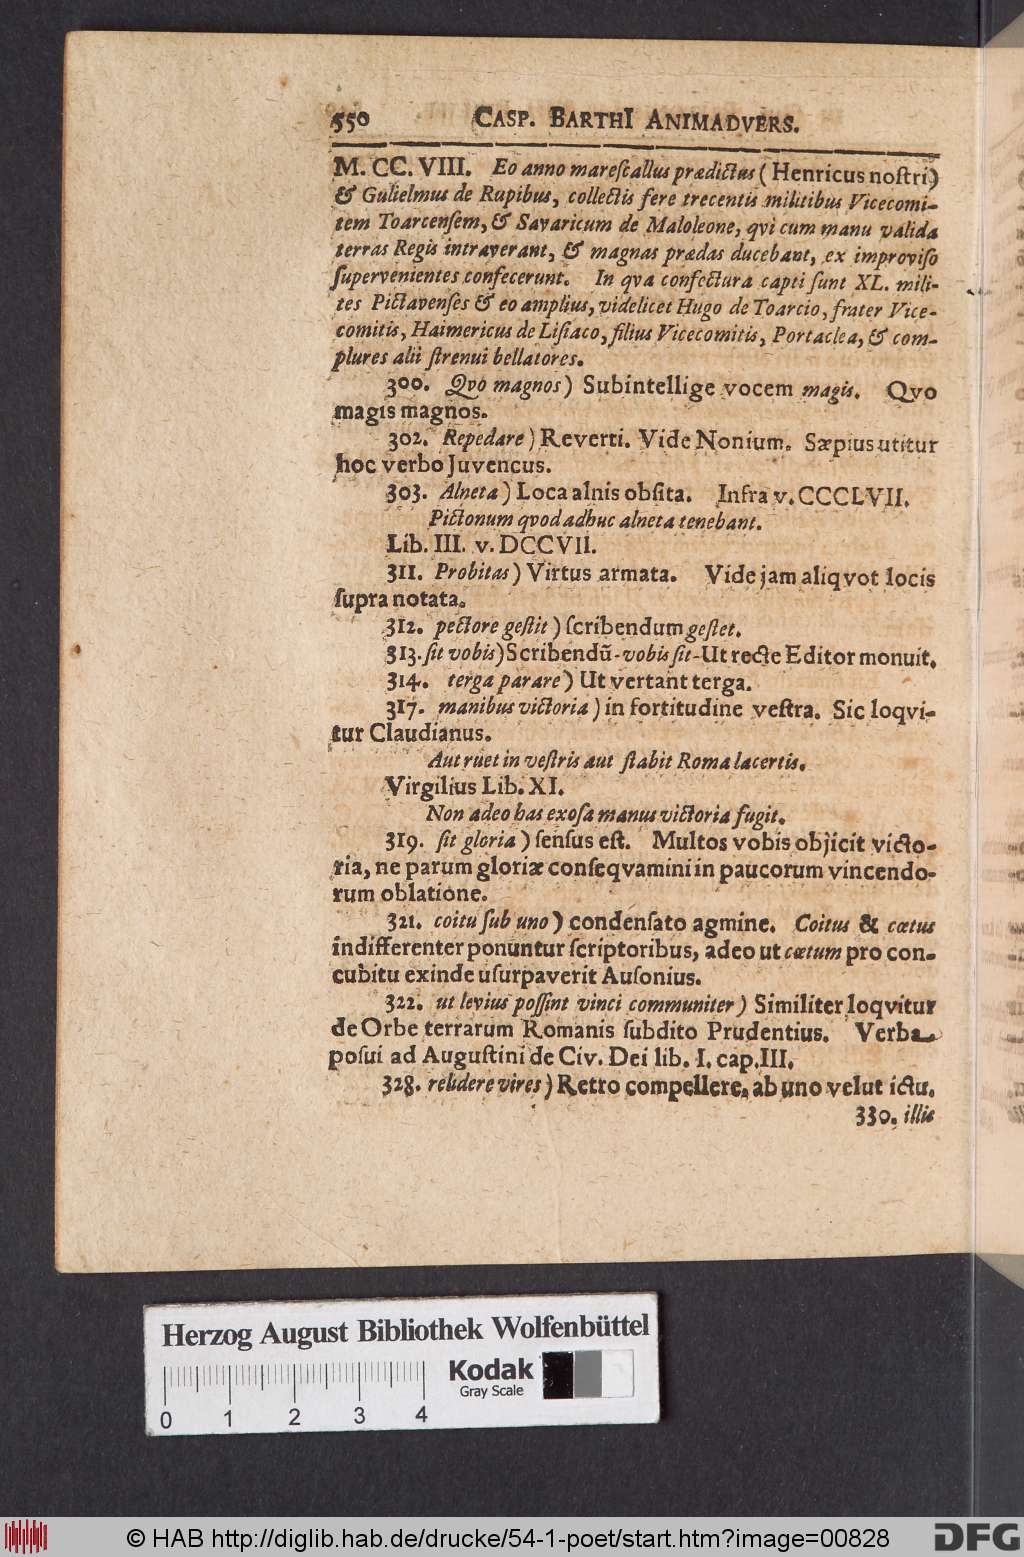 550 CASP. BARTHI ANIMADVERS.
M. CC. VIII. Eo anno mareſcallus prædictus (Henricus noſtri)
& Gulielmus de Rupibus, collectis fere trecentis militibus Vicecomi-
tem Toarcenſem, & Savaricum de Maloleone, qvi cum manu valida
terras Regis intraverant, & magnas prædas ducebant, ex improviſo
ſupervenientes confecerunt. In qva confectura capti ſunt XL. mili-
tes Pictavenſes & eo amplius, videlicet Hugo de Toarcio, frater Vice-
comitis, Haimericus de Liſiaco, filius Vicecomitis, Portaclea, & com-
plures alii ſtrenui bellatores.
300. Qvo magnos) Subintellige vocem magis. Qvo
magis magnos.
302. Repedare) Reverti. Vide Nonium. Sæpius utitur
hoc verbo Juvencus.
303. Alneta) Loca alnis obſita. Infra v. CCCLVII.
Pictonum qvod adhuc alneta tenebant.
Lib. III. v. DCCVII.
311. Probitas) Virtus armata. Vide jam aliqvot locis
ſupra notata.
312. pectore geſtit) ſcribendum geſtet.
313. ſit vobis) Scribendū - vobis ſit - Ut recte Editor monuit.
314. terga parare) Ut vertant terga.
317. manibus victoria) in fortitudine veſtra. Sic loqvi-
tur Claudianus.
Aut ruet in veſtris aut ſtabit Roma lacertis.
Virgilius Lib. XI.
Non adeo has exoſa manus victoria fugit.
319. ſit gloria) ſenſus eſt. Multos vobis objicit victo-
ria, ne parum gloriæ conſeqvamini in paucorum vincendo-
rum oblatione.
321. coitu ſub uno) condenſato agmine. Coitus & cœtus
indifferenter ponuntur ſcriptoribus, adeo ut cœtum pro con-
cubitu exinde uſurpaverit Auſonius.
322. ut levius poſſint vinci communiter) Similiter loqvitur
de Orbe terrarum Romanis ſubdito Prudentius. Verba
poſui ad Auguſtini de Civ. Dei lib. I. cap. III.
328. relidere vires) Retro compellere, ab uno velut ictu.
330. illis
Herzog August Bibliothek Wolfenbüttel
Kodak
Gray Scale
0 1 2 3 4
© HAB http://diglib.hab.de/drucke/54-1-poet/start.htm?image=00828
DFG